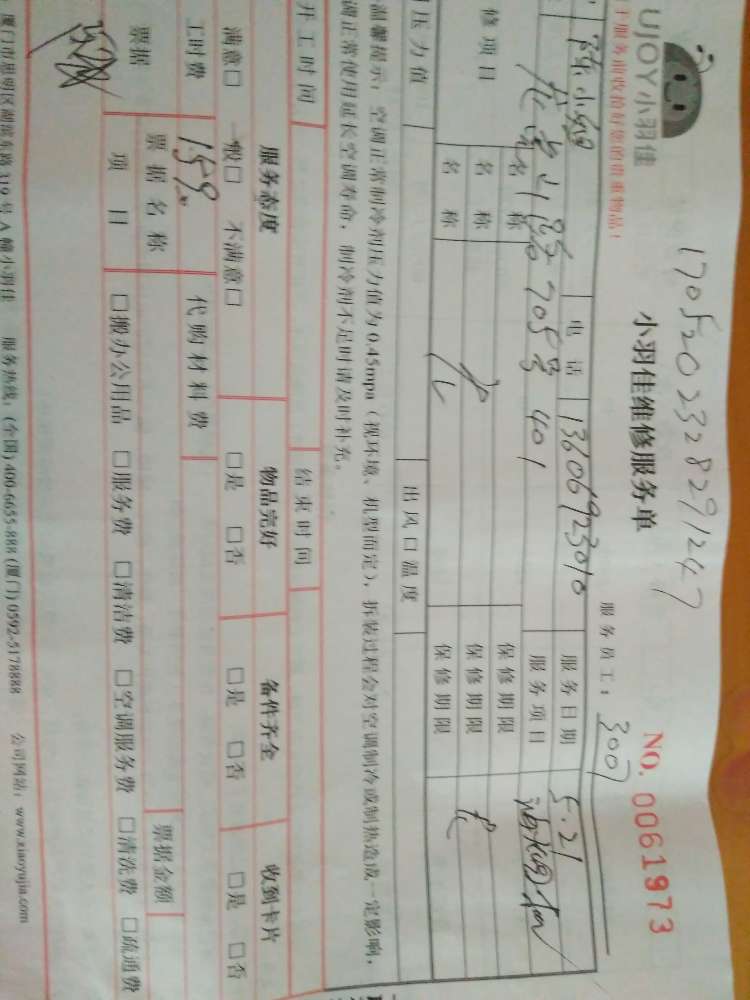 1705202328291247
UJOY小羽佳
小羽佳维修服务单
NO. 0061973
于服务前收拾好您的贵重物品！
服务员工：3007
陈小姐 电话 13606923010 服务日期 5.21
山路705号401 服务项目 油烟机
修项目 名称 保修期限
名称 保修期限
名称 保修期限
压力值 出风口温度
温馨提示：空调正常制冷剂压力值为0.45mpa（视环境、机型而定），拆装过程会对空调制冷或制热造成一定影响，
调正常使用延长空调寿命，制冷剂不足时请及时补充。
开工时间 结束时间
服务态度 物品完好 备件齐全 收到卡片
满意□ 一般□ 不满意□ □是 □否 □是 □否 □是 □否
工时费 159 代购材料费
票据 票据名称 票据金额
项目 □搬办公用品 □服务费 □清洁费 □空调服务费 □清洗费 □疏通费
厦门市思明区湖滨东路319号A幢小羽佳 服务热线：(全国) 400-6655-888 (厦门) 0592-5178888 公司网站：www.xiaoyujia.com